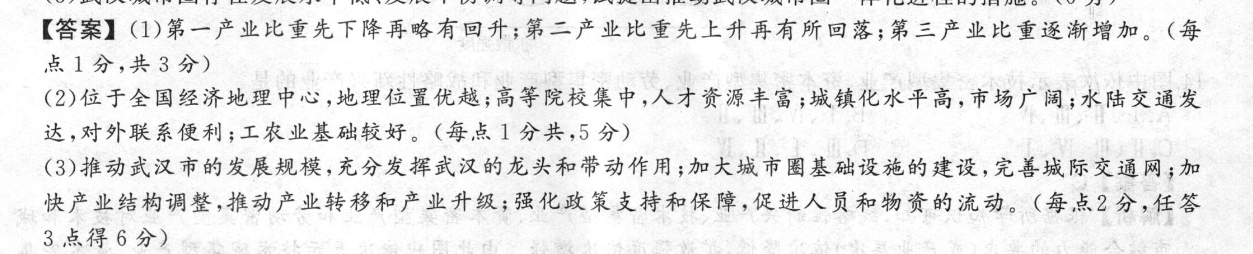 【答案】(1)第一产业比重先下降再略有回升;第二产业比重先上升再有所回落;第三产业比重逐渐增加。(每
点1分,共3分)
(2)位于全国经济地理中心,地理位置优越;高等院校集中,人才资源丰富;城镇化水平高,市场广阔;水陆交通发
达,对外联系便利;工农业基础较好。(每点1分共,5分)
(3)推动武汉市的发展规模,充分发挥武汉的龙头和带动作用;加大城市圈基础设施的建设,完善城际交通网;加
快产业结构调整,推动产业转移和产业升级;强化政策支持和保障,促进人员和物资的流动。(每点2分,任答
3点得6分)